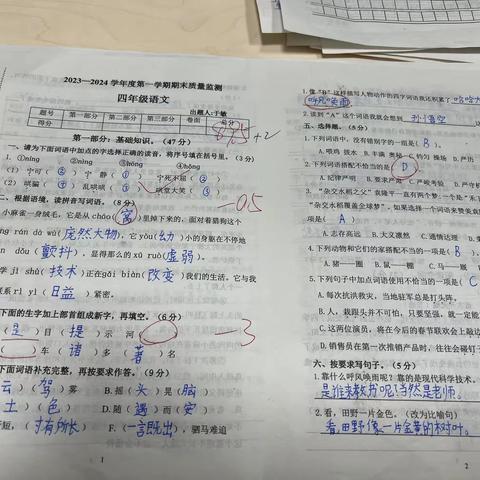 2023—2024学年度第一学期期末质量监测
四年级语文
出题人:于敏
题号 第一部分 第二部分 第三部分 卷面 总分
得分
+2
第一部分:基础知识。(47分)
一、请为下面词语中加点的字选择正确的读音,将序号填在括号里。(3分)
1. ①níng ②nìng ③hōng ④hǒng
(1) 宁可(②) 宁静(①) 宁死不屈(②)
(2) 哄骗(④) 乱哄哄 哄堂大笑(③)
二、根据语境,读拼音写词语。(8分) -0.5
小麻雀一身绒毛,它是从cháo(窝)里掉下来的。面对着猎狗这个
rán dà wù(庞然大物),它yòu(幼)小的身躯在不停地
dǒu(颤抖),显得那么的xū ruò(虚弱)。
学jì shù(技术)正在gǎi biàn(改变)我们的生活。它与我
联系rì yì(日益)紧密。
下面的生字加上部首组成新字,再填空。(6分) -3
(是)目(提)示 河
车(诸)多(著)名
下面词语补充完整,再按要求作答。(9分)
云(驾)雾 B. 摇(头)晃(脑)
土(色) D. 随(遇)而(安)
短,(寸有所长) F. (一言既出),驷马难追
1
1. 像“B”这样描写人物动作的四字词语我还积累了
呼风唤雨
2. 读到“A”这个词语我就会想到 孙悟空
五、选择题。(8分)
1. 下列词语中,没有错别字的一组是(B)。
2. 下列词语搭配不恰当的是(D)
A. 纪律严明 B. 要求严肃 C. 声峻考验 D. 严守机
3. “杂交水稻之父”袁隆平一直有两个梦:一个是“禾
“杂交水稻覆盖全球梦”。如果选择一个词语来赞美袁
(A)
A. 志存高远 B. 大义凛然 C. 通情达理 D.
4. 下列动物和它们的家搭配不当的一项是(B)
A. 猪——圈 B. 鼠——棚 C. 马——厩 D.
5. 下列句子中加点词语使用不恰当的一项是(C
A. 每次抗洪救灾,当地驻军总是打头阵。
B. 人,栽跟头并不可怕,只要坚强,就一定能
C. 这两位演员,将在今后的春节联欢会上敲边
D. 销售员在第一次推销产品时,往往会碰钉子
六、按要求写句子。(5分)
1. 靠什么呼风唤雨呢?靠的是现代科学技术。
是谁来教书呢?当然是老师。
2. 看,田野一片金色。(改为比喻句)
看,田野像一片金黄的树叶。
2